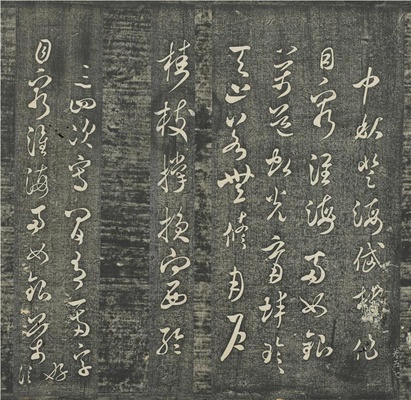 中秋登海岱樓作
目窮淮海兩如銀
萬道虹光育蚌珍
天上若無脩月戶
桂枝撐損向西輪
三四次寫間有一兩字好
信
目窮淮海兩如銀萬